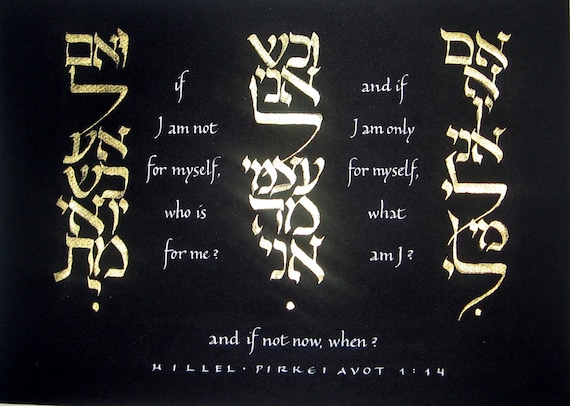 אם
אין
אני
לי
מי
לי
וכש
אני
ל
עצמי
מה
אני
ואם
לא
עכשיו
אימתי
if
I am not
for myself,
who is
for me?
and if
I am only
for myself,
what
am I?
and if not now, when?
HILLEL · PIRKEI AVOT 1:14